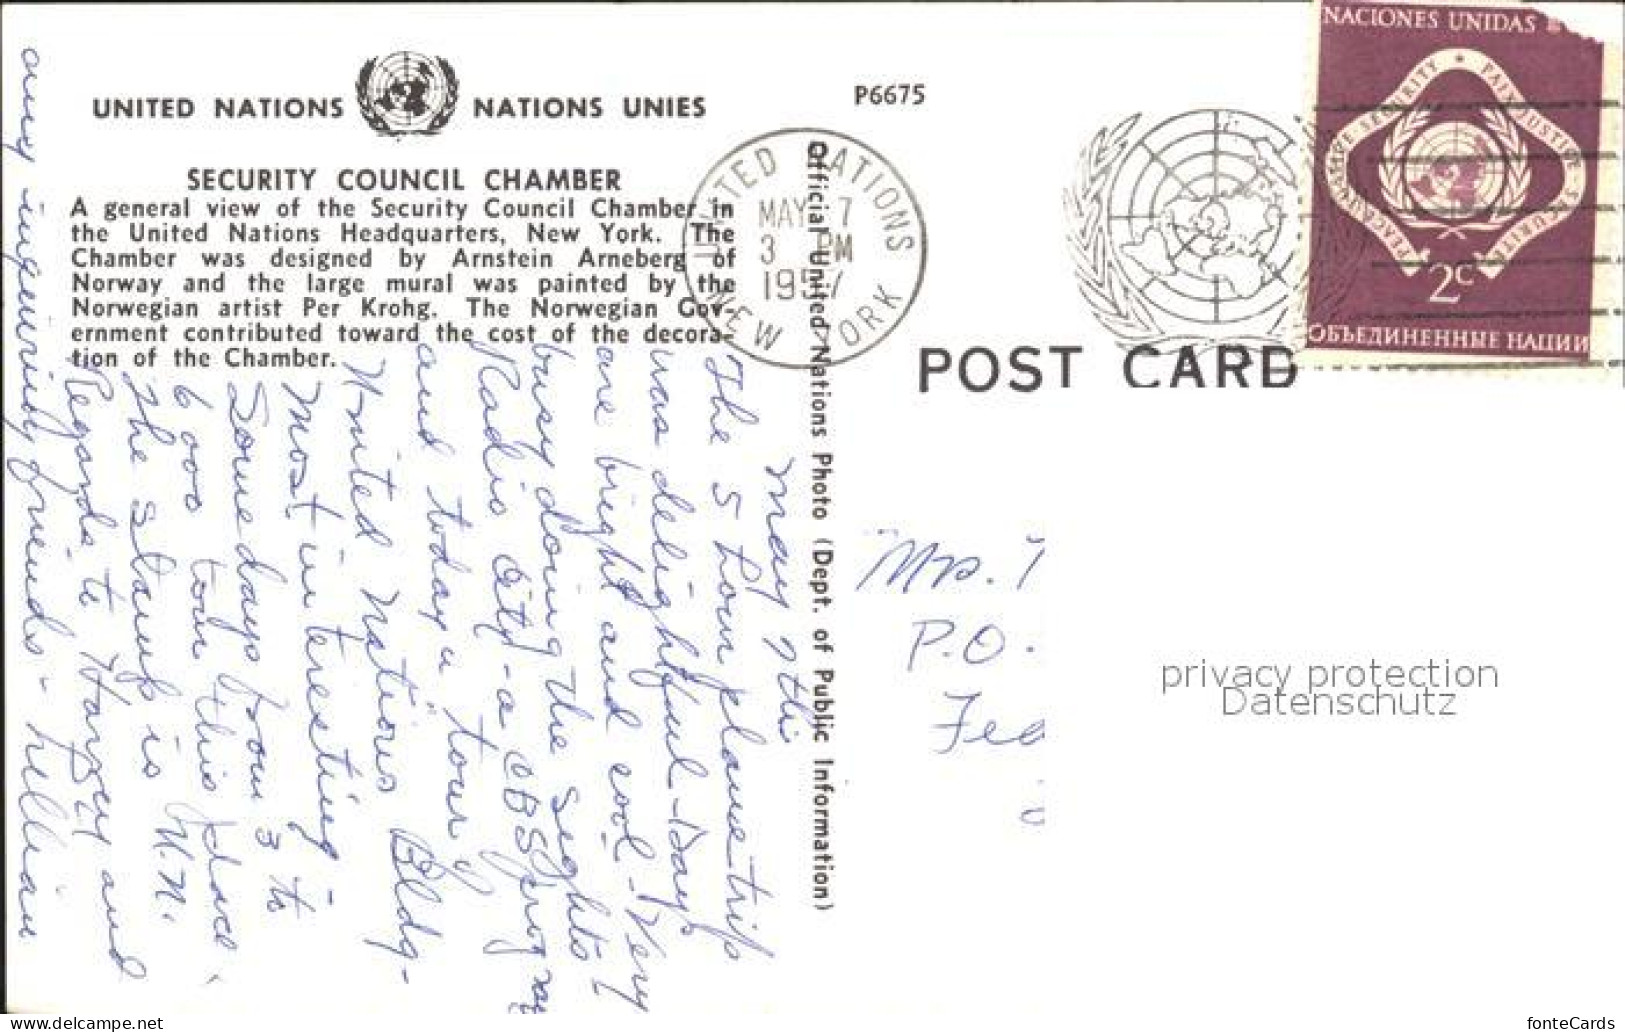 UNITED NATIONS NATIONS UNIES
SECURITY COUNCIL CHAMBER
A general view of the Security Council Chamber in
the United Nations Headquarters, New York. The
Chamber was designed by Arnstein Arneberg of
Norway and the large mural was painted by the
Norwegian artist Per Krohg. The Norwegian Gov-
ernment contributed toward the cost of the decora-
tion of the Chamber.
P6675
UNITED NATIONS
MAY 7
3 PM
1957
NEW YORK
Official United Nations Photo (Dept. of Public Information)
POST CARD
NACIONES UNIDAS
PEACE JUSTICE SECURITY ★ PAIX JUSTICE SECURITE
2c
ОБЪЕДИНЕННЫЕ НАЦИИ
May 7th
The 5 hour plane trip
was delightful - Days
are bright and cool - Very
busy doing the sights -
Radio City - a CBS
and today a tour of
United Nations Bldg -
Most interesting -
Some days from 3 to
6000 tour this place.
The stamp is U.N.
Regards to Harvey and
any inquiring friends - Lillian
Mr.
P.O.
Fed
privacy protection
Datenschutz
delcampe.net
fonteCards